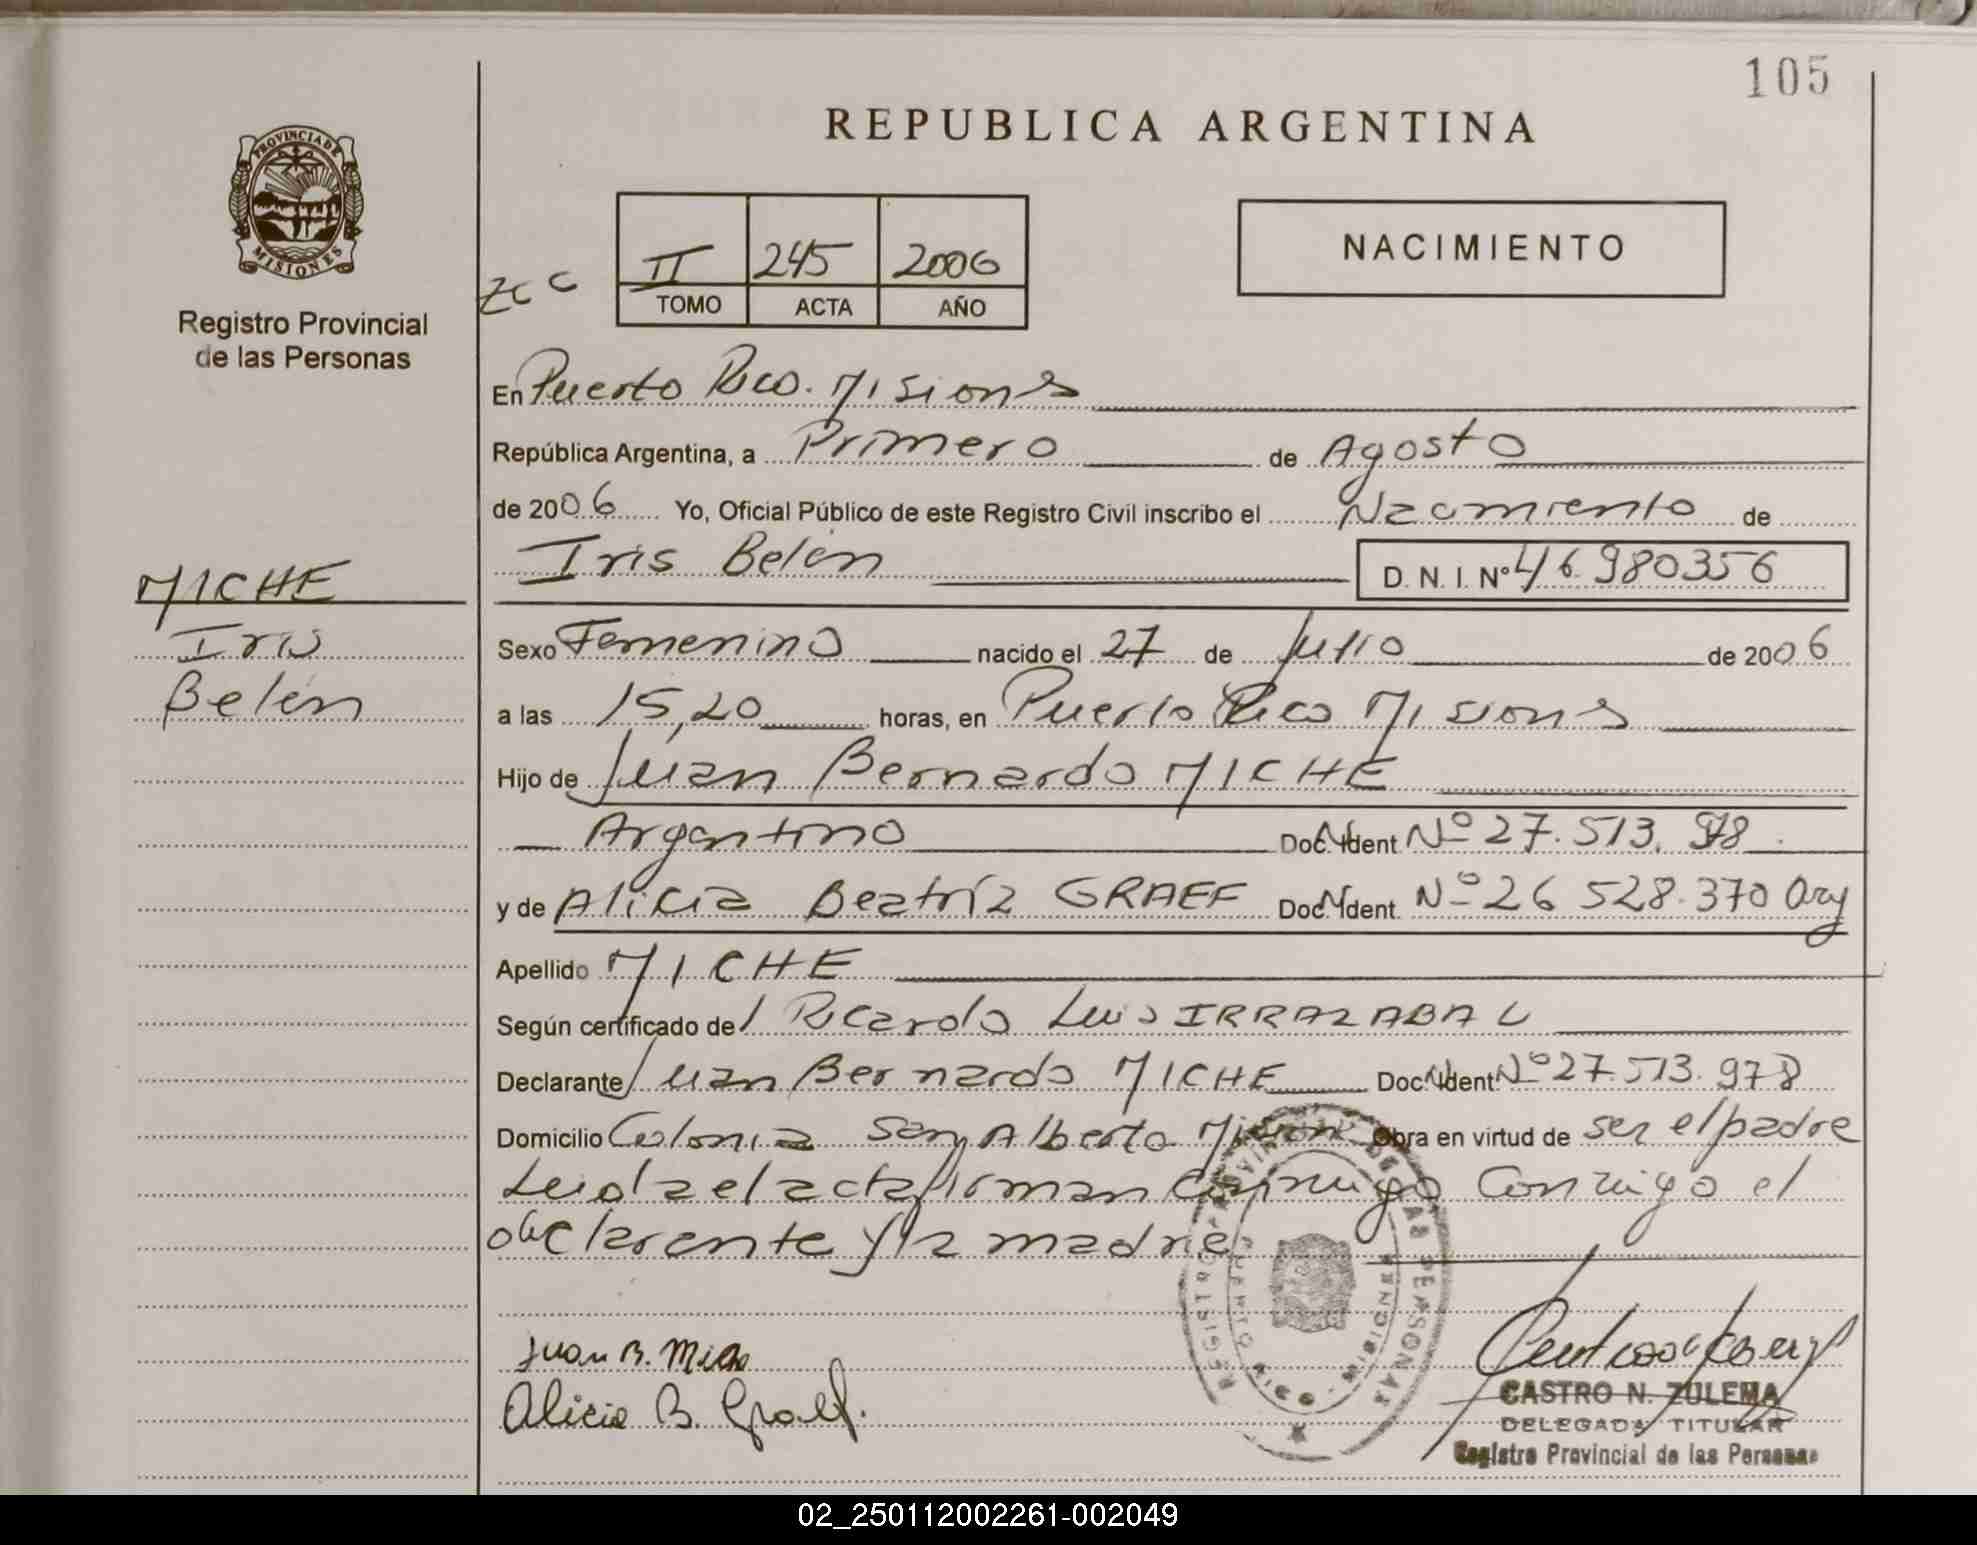 105
REPUBLICA ARGENTINA
PROVINCIA DE
MISIONES
Registro Provincial
de las Personas
II 245 2006
TOMO ACTA AÑO
NACIMIENTO
En Puerto Rico. Misiones
República Argentina, a Primero de Agosto
de 2006 Yo, Oficial Público de este Registro Civil inscribo el Nacimiento de
Iris Belén D. N. I. Nº 46.980356
MICHE
Iris
Belén
Sexo Femenino nacido el 27 de Julio de 2006
a las 15,20 horas, en Puerto Rico Misiones
Hijo de Juan Bernardo MICHE
Argentino Doc. Ident Nº 27.513.978
y de Alicia Beatríz GRAEF Doc. Ident. Nº 26 528.370 Arg
Apellido MICHE
Según certificado de Ricardo Luis IRRAZABAL
Declarante Juan Bernardo MICHE Doc. Ident Nº 27.513.978
Domicilio Colonia San Alberto Misiones Obra en virtud de ser el padre
Leida el acta firman conmigo Conmigo el
declarante y la madre
REGISTRO PROVINCIAL DE LAS PERSONAS
PUERTO RICO - MISIONES
Juan B. Miche
Alicia B. Graef.
CASTRO N. ZULEMA
DELEGADA TITULAR
Registro Provincial de las Personas
02_250112002261-002049